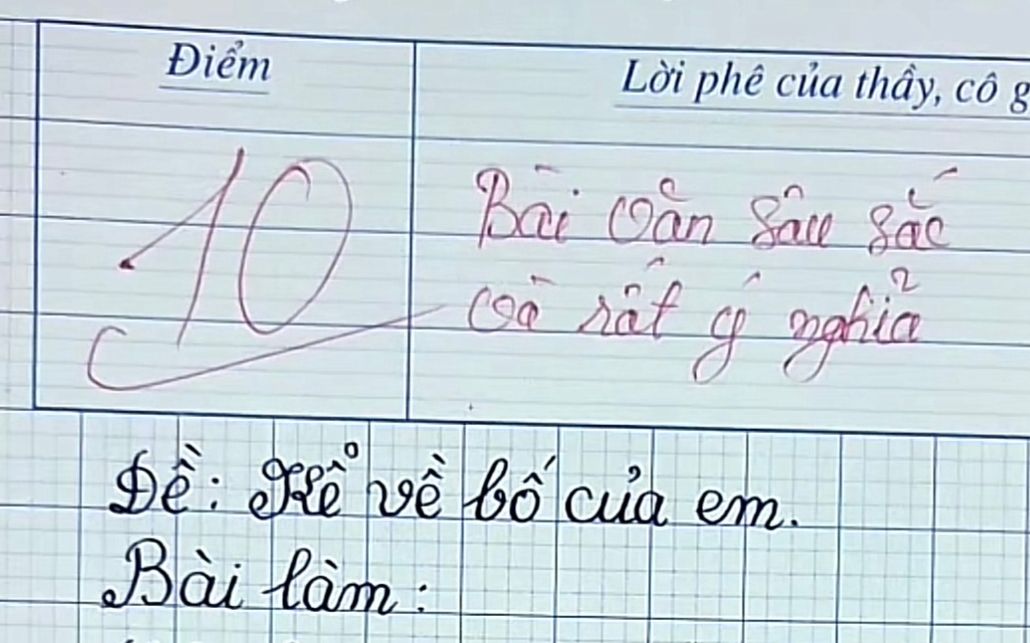 Điểm
Lời phê của thầy, cô g
10
Bài văn sâu sắc
và rất ý nghĩa
Đề: Kể về bố của em.
Bài làm: